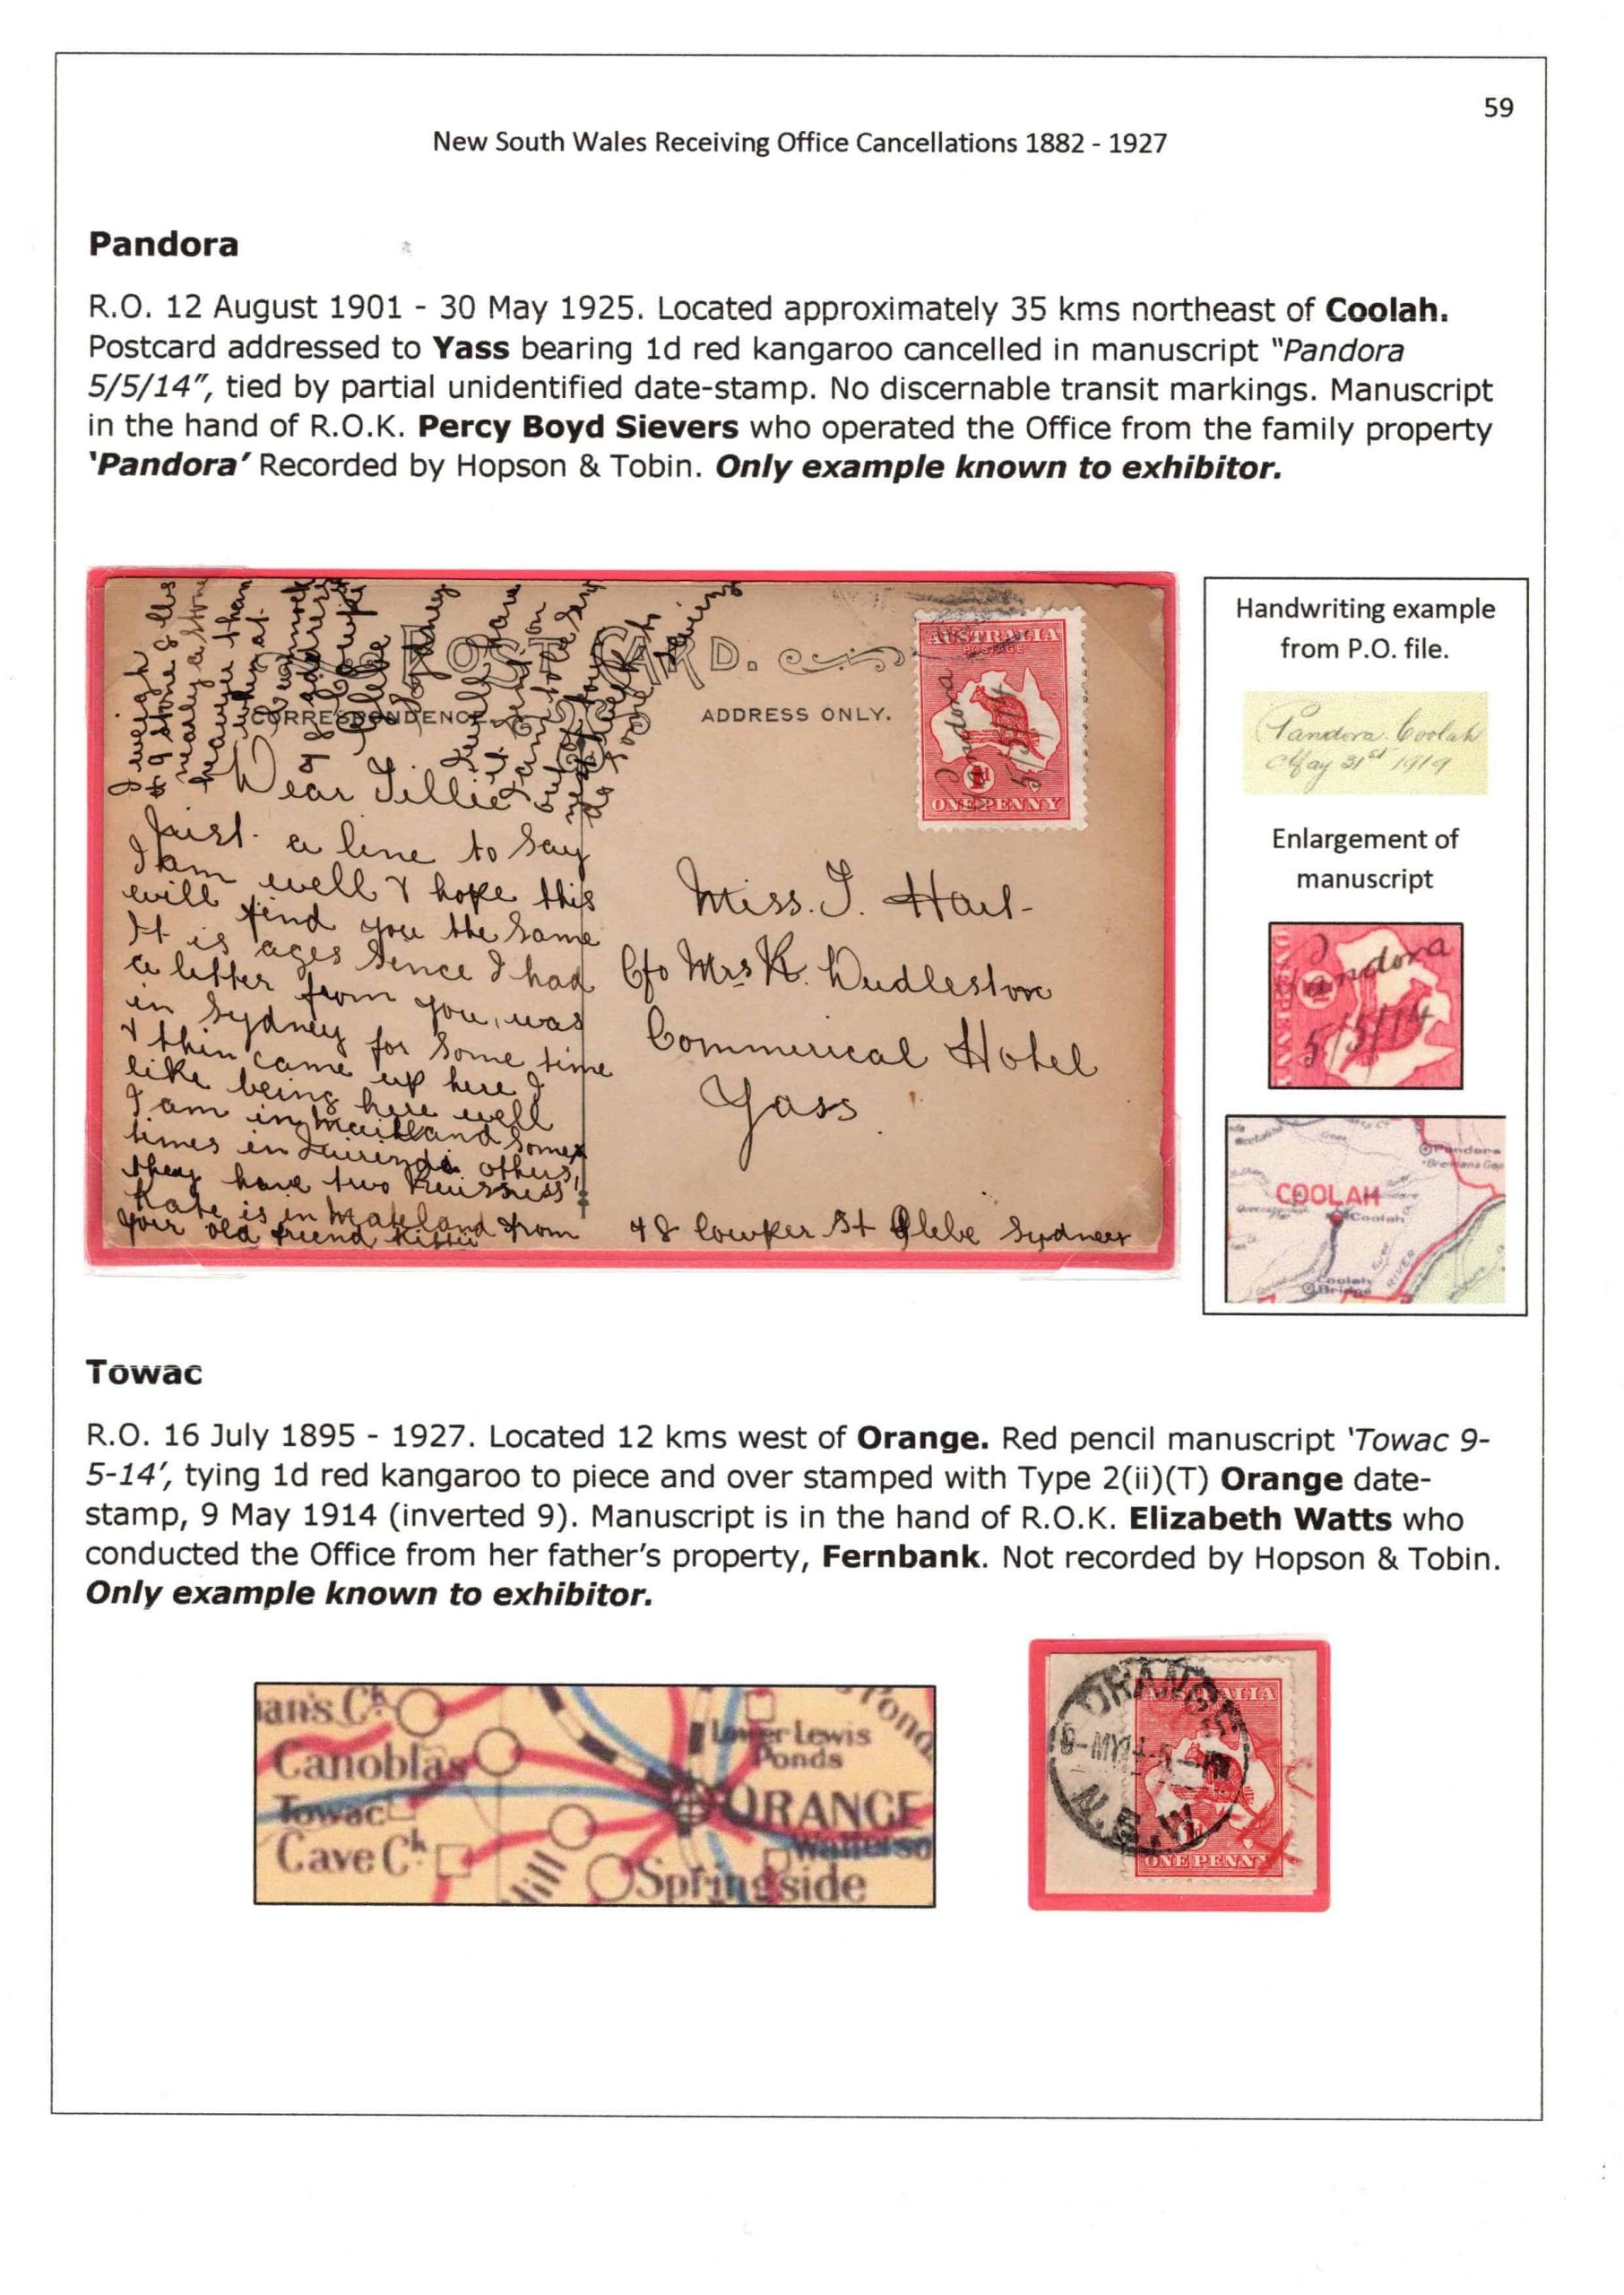 59
New South Wales Receiving Office Cancellations 1882 - 1927
Pandora
R.O. 12 August 1901 - 30 May 1925. Located approximately 35 kms northeast of Coolah.
Postcard addressed to Yass bearing 1d red kangaroo cancelled in manuscript "Pandora
5/5/14", tied by partial unidentified date-stamp. No discernable transit markings. Manuscript
in the hand of R.O.K. Percy Boyd Sievers who operated the Office from the family property
'Pandora' Recorded by Hopson & Tobin. Only example known to exhibitor.
I weigh
9 stone 9 lbs
nearly a stone
heavier than
when at
POST CARD.
CORRESPONDENCE.
ADDRESS ONLY.
Dear Tillie
Just a line to say
I am well & hope this
will find you the same
It is ages sence I had
a letter from you, was
in Sydney for some time
& thin came up here I
like being here well
I am in Maitland somes
times in others,
they have two
Kate is in Mateland from
your old friend Kittie
AUSTRALIA
POSTAGE
Pandora
5/5/14
1d
ONE PENNY
Miss. T. Hart
C/o Mrs K. Dudlestone
Commerical Hotel
Yass
48 Cowper St Glebe Sydney
Handwriting example
from P.O. file.
Pandora. Coolah
May 31st 1919
Enlargement of
manuscript
Pandora
5/5/14
ONE PENNY
Pandora
COOLAH
Coolah
RIVER
Coolah
Bridge
Towac
R.O. 16 July 1895 - 1927. Located 12 kms west of Orange. Red pencil manuscript 'Towac 9-
5-14', tying 1d red kangaroo to piece and over stamped with Type 2(ii)(T) Orange date-
stamp, 9 May 1914 (inverted 9). Manuscript is in the hand of R.O.K. Elizabeth Watts who
conducted the Office from her father's property, Fernbank. Not recorded by Hopson & Tobin.
Only example known to exhibitor.
an's Ck
Canoblas
Towac
Cave Ck
Hill
Lower Lewis
Ponds
Pond
ORANGE
Springside
ORANGE
N.S.W
ALIA
ONE PENNY